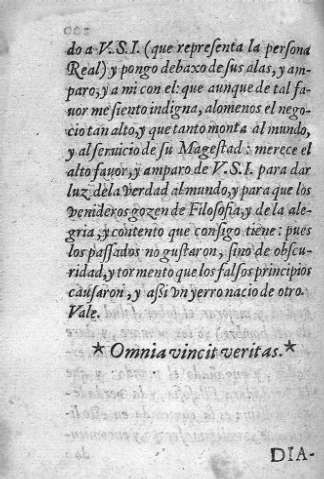 do a V.S.I. (que representa la persona
Real) y pongo debaxo de sus alas, y am-
paro, y a mi con el: que aunque de tal fa-
uor me siento indigna, alomenos el nego-
cio tan alto, y que tanto monta al mundo,
y al seruicio de su Magestad: merece el
alto fauor, y amparo de V.S.I. para dar
luz de la verdad al mundo, y para que los
venideros gozen de Filosofia, y de la ale-
gria, y contento que consigo tiene: pues
los passados no gustaron, sino de obscu-
ridad, y tormento que los falsos principios
causaron, y aßi vn yerro nacio de otro.
Vale.
*Omnia vincit veritas.*
DIA-